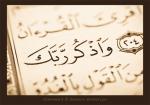 ٱلْقُرْءَانُ
٢٠٤ وَٱذْكُر رَّبَّكَ
ٱلْقَوْلِ بِٱلْغُدُوِّ